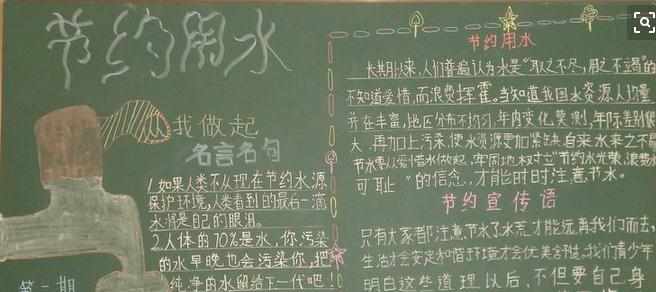 节约用水
我做起
名言名句
1.如果人类不从现在节约水源
保护环境,人类看到的最后一滴
水将是自己的眼泪。
2.人体的70%是水,你污染
的水早晚也会污染你,把
纯净的水留给下一代吧!
第一期
节约用水
长期以来,人们普遍认为水是“取之不尽,用之不竭”的
不知道爱惜,而浪费挥霍。当知道我国水资源人均量
并不丰富,地区分布不均匀,年内变化莫测,年际差别很
大,再加上污染,使水资源更加紧缺,自来水来之不易
节水要从爱惜水做起,牢固地树立“节约水光荣,浪费水
可耻”的信念,才能时时注意节水。
节约宣传语
只有大家都注意节水了水荒才能远离我们而去,
生活才会安定和谐环境才会优美舒适,我们青少年
明白这些道理以后,不但要自己身